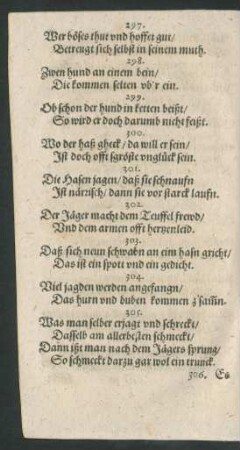 297.
Wer böses thut vnd hoffet gut/
Betreugt sich selbst in seinem muth.
298.
Zwen hund an einem bein/
Die kommen selten vb'r ein.
299.
Ob schon der hund in ketten beißt/
So wird er doch darumb nicht feißt.
300.
Wo der haß gheck/ da will er sein/
Ist doch offt sgröste vnglück sein.
301.
Die Hasen jagen/ daß sie schnaufn
Ist närrisch/ dann sie vor starck laufn.
302.
Der Jäger macht dem Teuffel frewd/
Vnd dem armen offt hertzenleid.
303.
Daß sich neun schwabn an eim hasn gricht/
Das ist ein spott vnd ein gedicht.
304.
Viel jagden werden angefangn/
Das hurn vnd buben kommen z'samn.
305.
Was man selber erjagt vnd schreckt/
Dasselb am allerbesten schmeckt/
Dann ißt man nach dem Jägers sprung/
So schmeckt darzu gar wol ein trunck.
306. Es